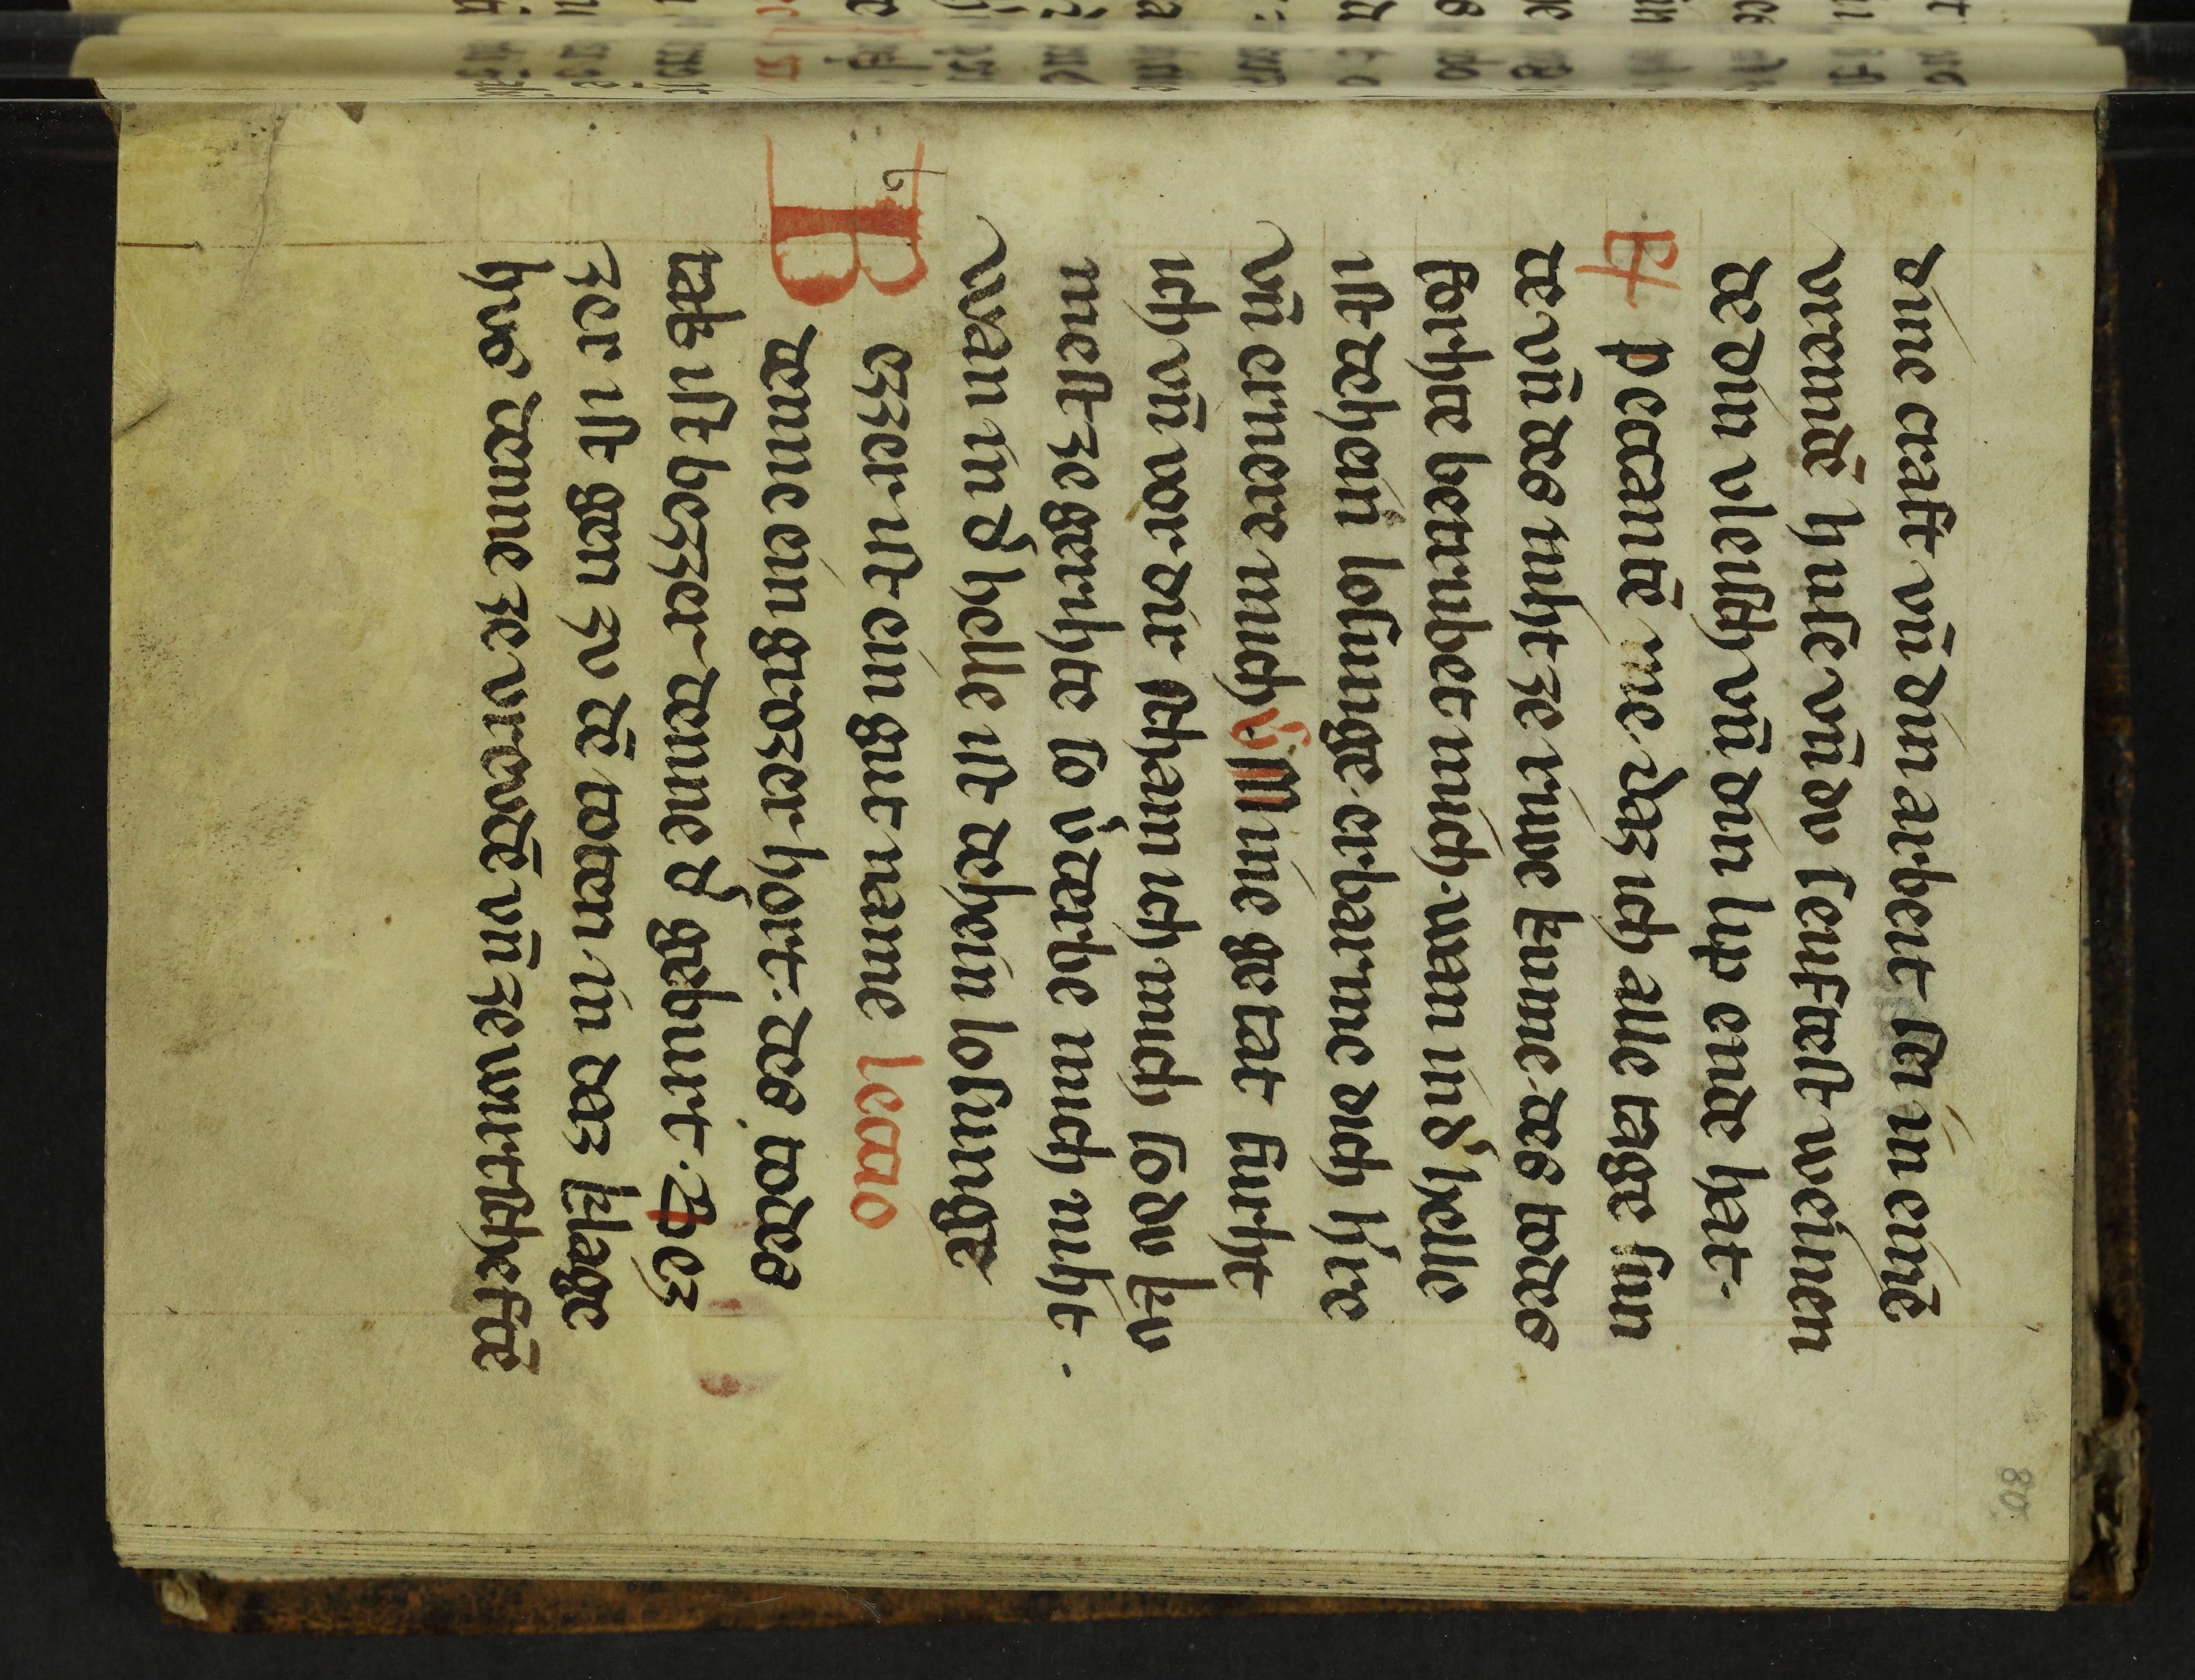 dine craft vn̄ din arbeit sei in einē
vremdē huse vn̄ dv seuftest weinen
de din vleisch vn̄ din lip ende hat.
R peccantē me. Daz ich alle tage sun
de vn̄ des niht ze ruwe kume. des todes
forhte betrubet mich. wan in dˀ helle
ist dehein losunge. erbarme dich h̓re
vn̄ ernere mich. v̓. Mine getat furht
ich vn̄ vor dir scham ich mich so dv kv
mest ze gerihte so v̓derbe mich niht.
wan in dˀ helle ist dehein losunge
Bezzer ist ein gut name lectio
denne ein grozer hort. des todes
tak ist bezzer denne dˀ geburt. Dez
zer ist gen zv dē toten in daz klage
hus denne ze vrevdē vn̄ ze wurtscheftē
80